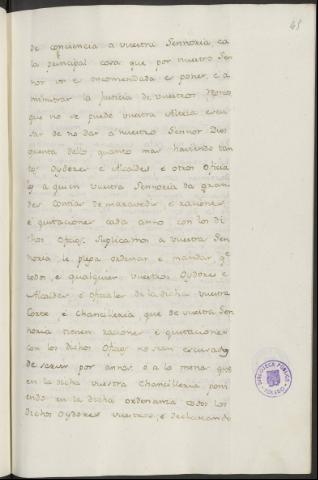 45
de conciencia a vuestra Sennoria, ca
la principal cosa que por nuestro Sen
nor vos es encomendada es poner, e a
ministrar la Justicia de vuestros Regnos
que no se puede vuestra Alteza escu
sar de no dar a nuestro Sennor Dios
quenta dello, quanto mas haciendo tan
tos Oydores e Alcaldes e otros oficia
les a quien vuestra Sennoria da gran
des contias de maravedis e raciones
e quitaciones cada anno, con los di
chos oficios: Suplicamos a vuestra Sen
noria, le plega ordenar e mandar, qe
todos, e qualquier vuestros Oydores e
Alcaldes, e oficiales de la dicha vuestra
Corte e Chancilleria, que de vuestra Sen
noria tienen raciones e quitaciones
con los dichos oficios no sean escusados
de servir por annos, o a lo menos
en la dicha vuestra Chancilleria, poni
endo en la dicha ordenanza todos los
dichos Oydores vuestros, e declarando
BIBLIOTECA PUBLICA
TOLEDO